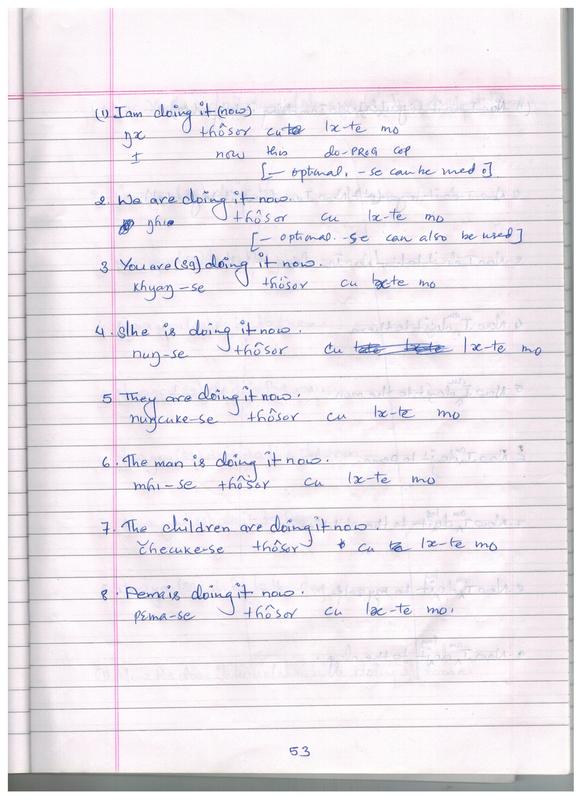 (1) I am doing it (now)
ŋx thôsor cu lx-te mo
I now this do-PROG COP
[— optional. -se can be used]
2. We are doing it now.
ghi thôsor cu lx-te mo
[— optional. -se can also be used]
3 You are (sg) doing it now.
khyaŋ-se thôsor cu lx-te mo
4. S/he is doing it now.
nuŋ-se thôsor cu lx-te mo
5 They are doing it now.
nuŋcuke-se thôsor cu lx-te mo
6. The man is doing it now.
mhi-se thôsor cu lx-te mo
7. The children are doing it now.
čhecuke-se thôsor cu lx-te mo
8. Pema is doing it now.
pɛma-se thôsor cu lx-te mo.
53